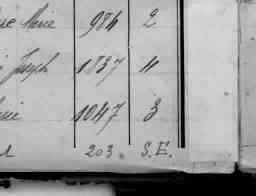 Marie 984 2
Joseph 1837 11
1047 3
203. S.E.